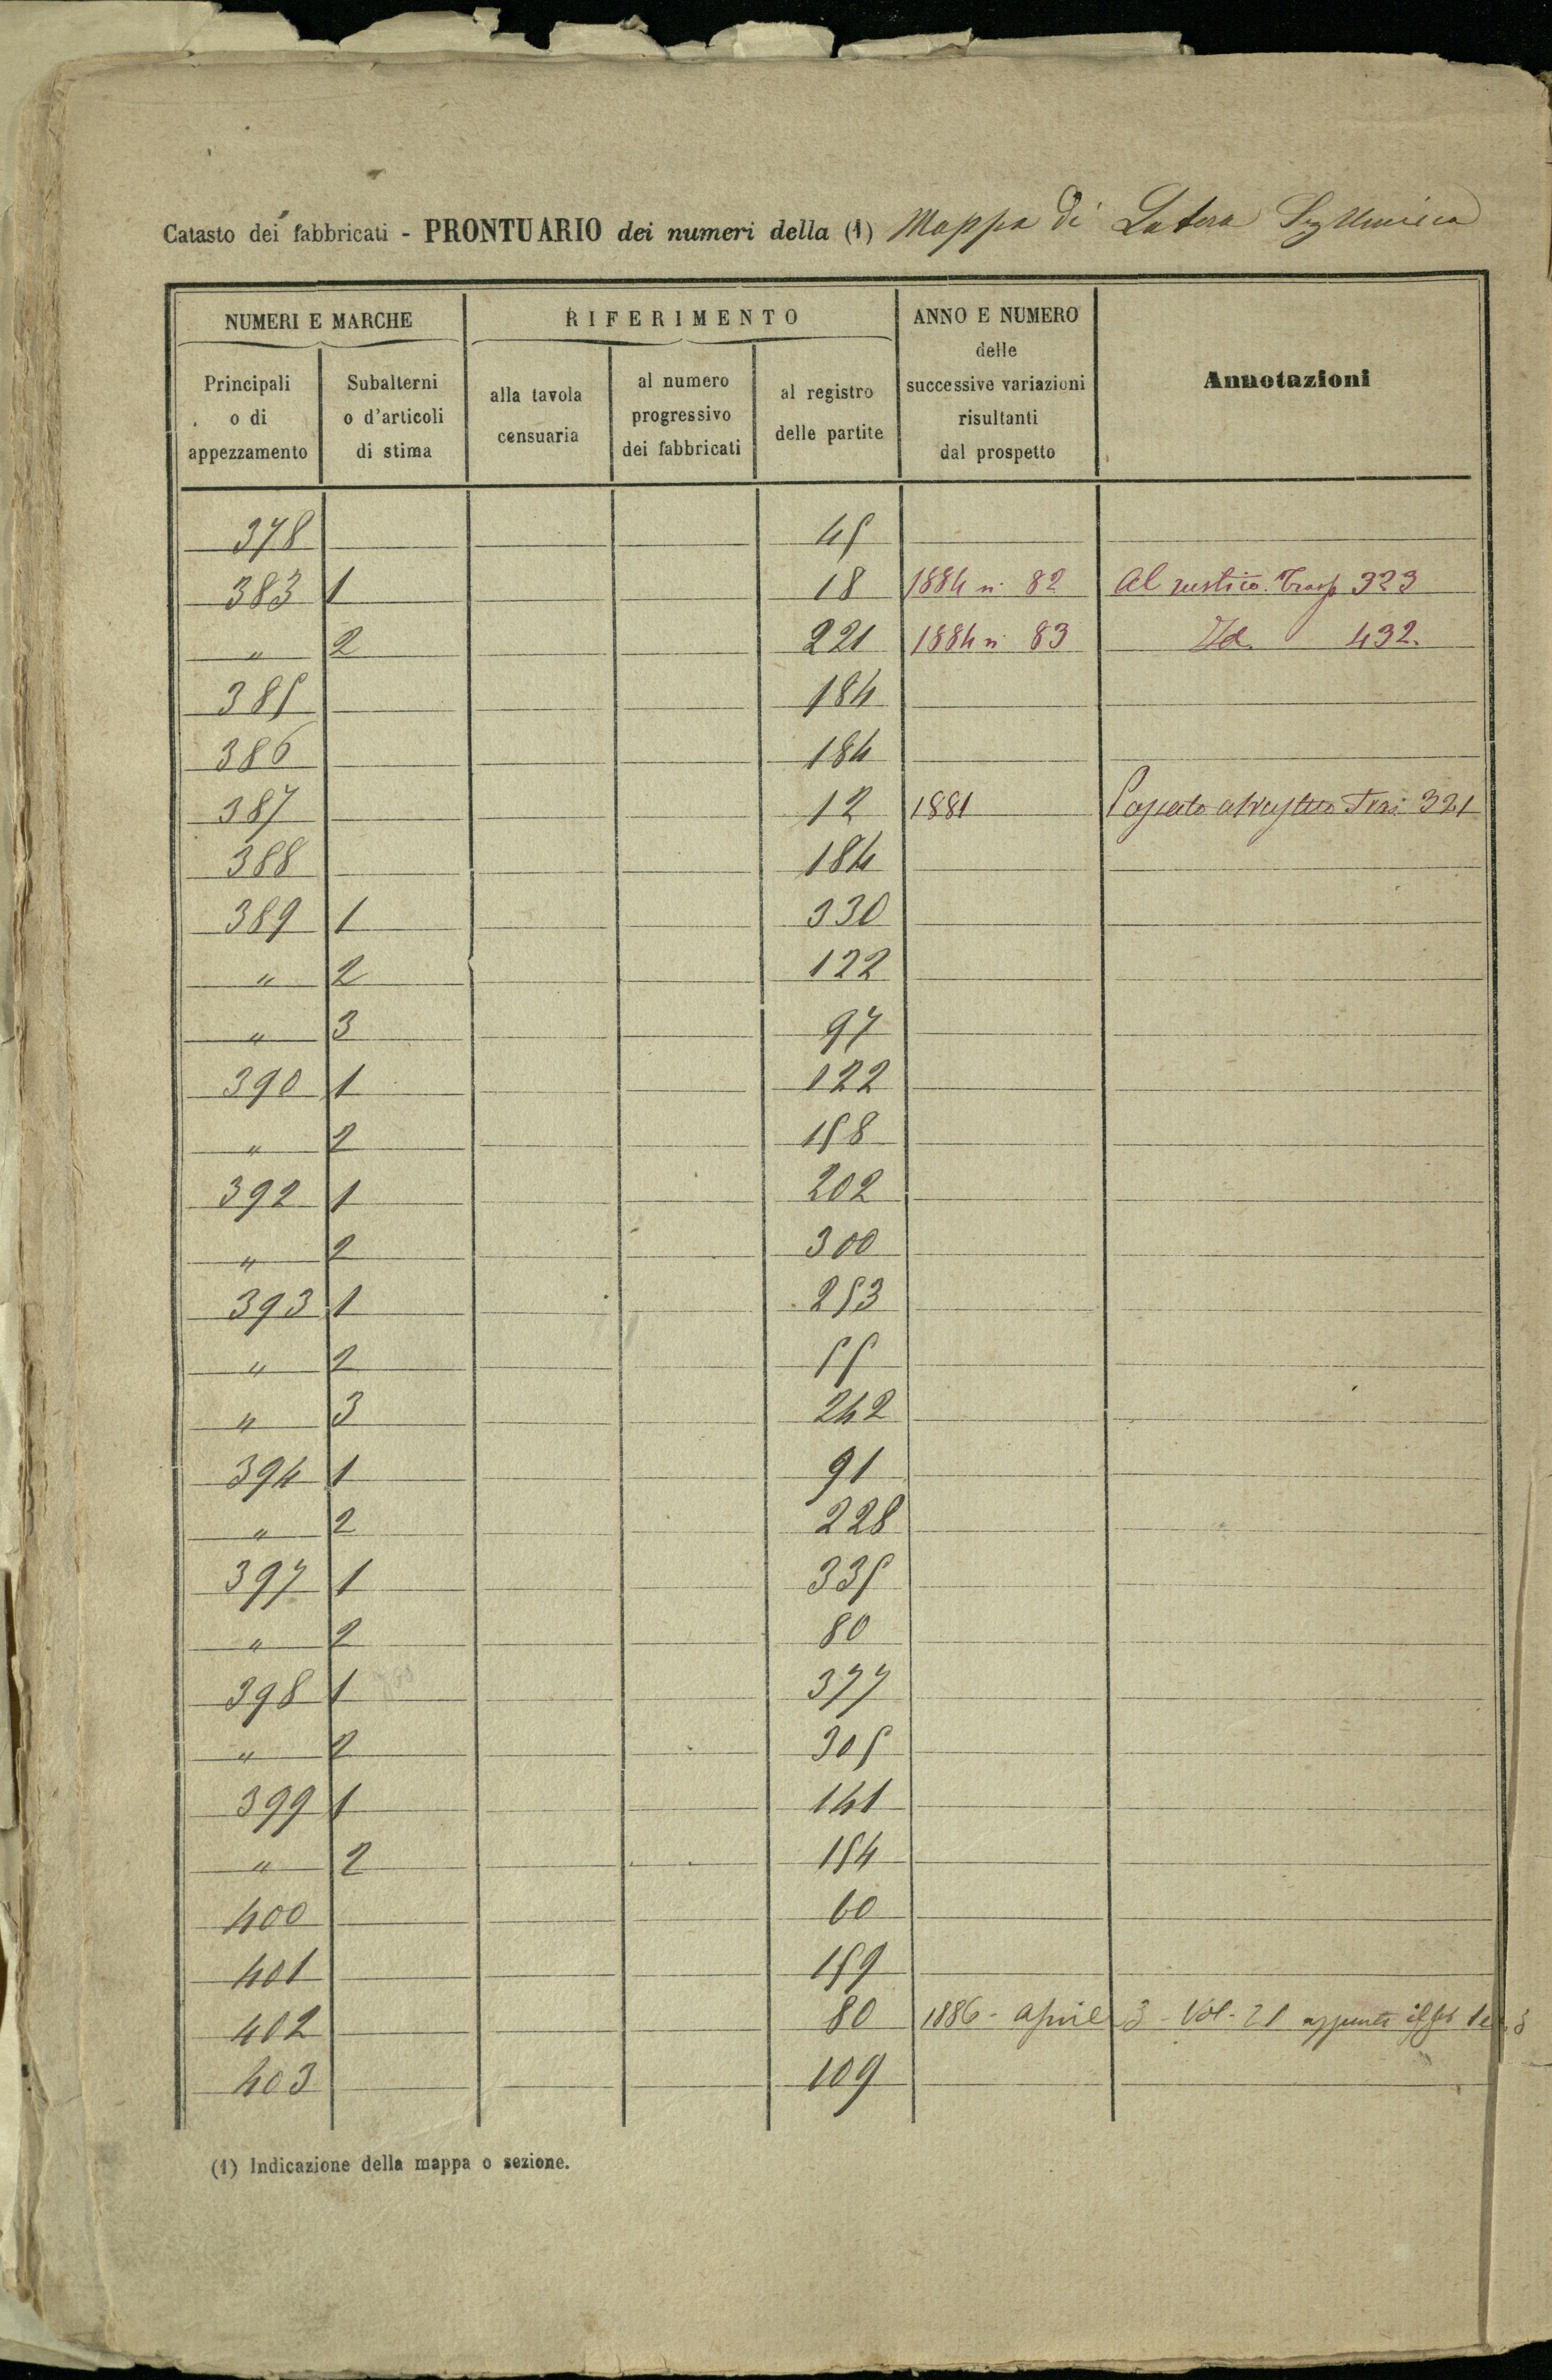 Catasto dei fabbricati - PRONTUARIO dei numeri della (1) Mappa di Latera Sez Unica
NUMERI E MARCHE
RIFERIMENTO
ANNO E NUMERO
delle
successive variazioni
risultanti
dal prospetto
Annotazioni
Principali
o di
appezzamento
Subalterni
o d'articoli
di stima
alla tavola
censuaria
al numero
progressivo
dei fabbricati
al registro
delle partite
378 45
383 1 18 1884 n. 82 Al rustico. Trasp 323
" 2 221 1884 n. 83 Id. 432.
385 184
386 184
387 12 1881 Passato al rustico Tras. 321
388 184
389 1 330
" 2 122
" 3 97
390 1 122
" 2 158
392 1 202
" 2 300
393 1 253
" 2 55
" 3 242
394 1 91
" 2 228
397 1 335
" 2 80
398 1 377
" 2 305
399 1 141
" 2 154
400 60
401 159
402 80 1886 - Aprile 3 - Vol. 21
403 109
(1) Indicazione della mappa o sezione.